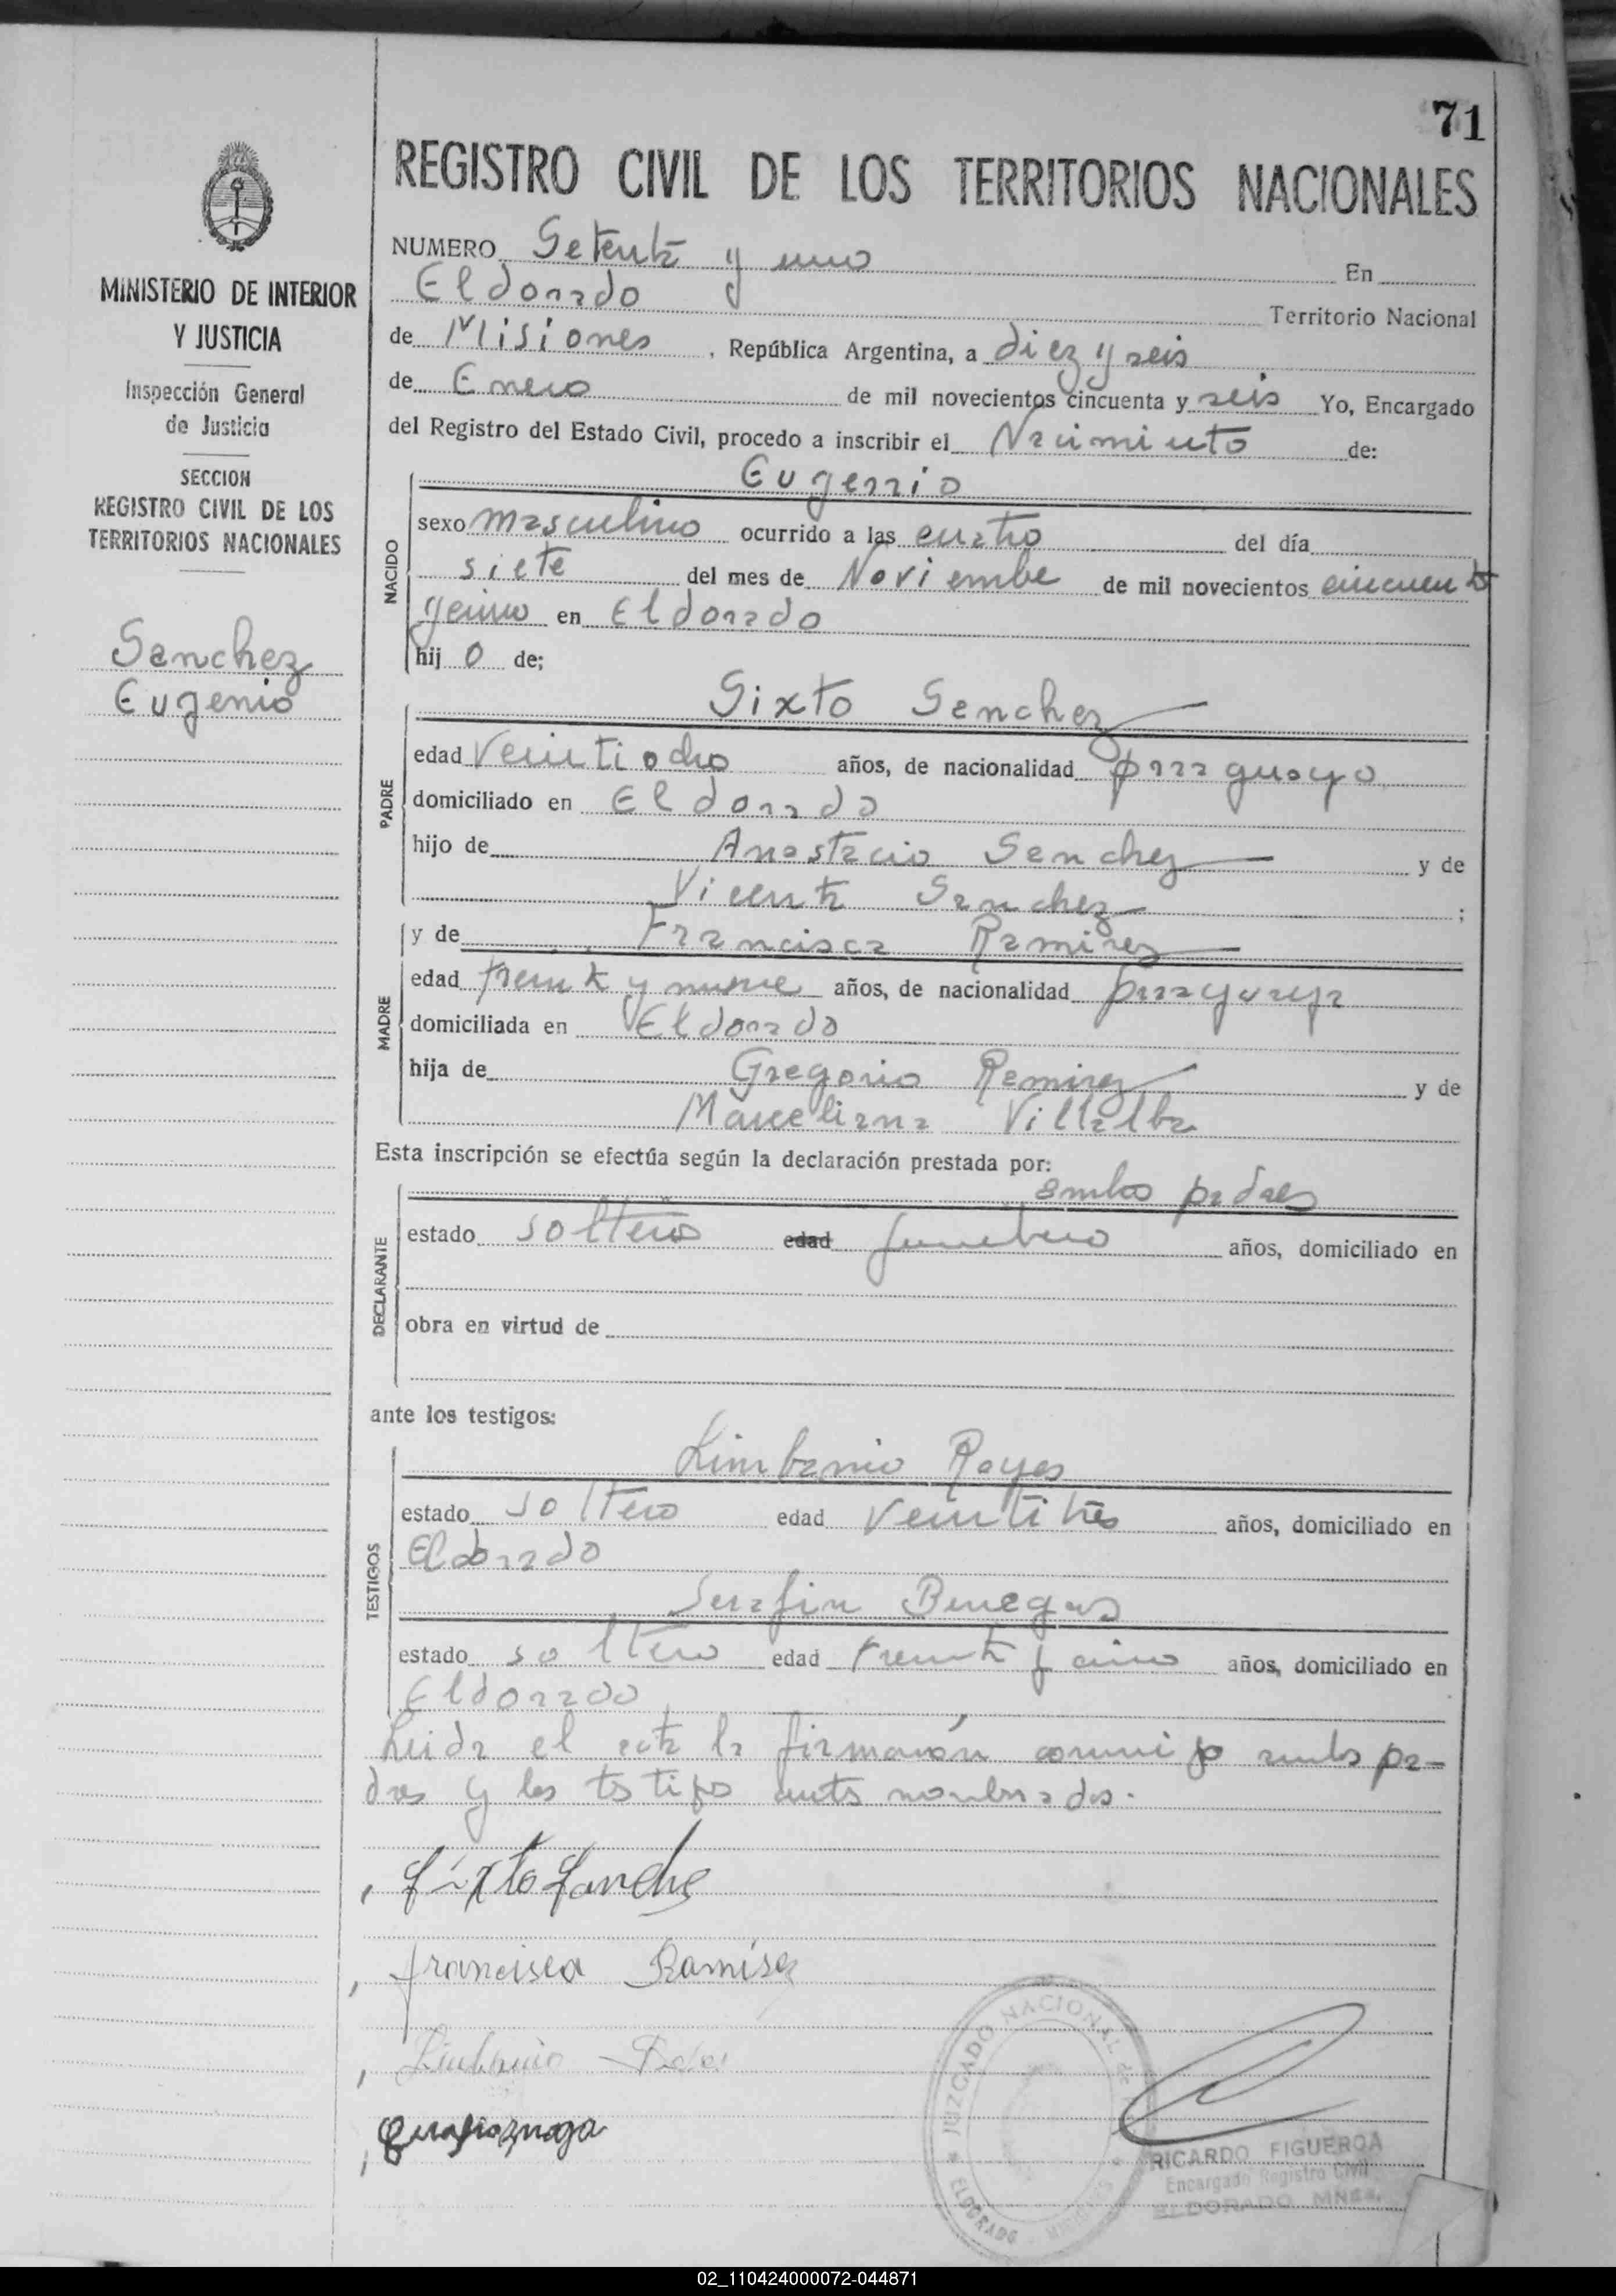 71
REGISTRO CIVIL DE LOS TERRITORIOS NACIONALES
MINISTERIO DE INTERIOR
Y JUSTICIA
Inspección General
de Justicia
SECCION
REGISTRO CIVIL DE LOS
TERRITORIOS NACIONALES
Sanchez
Eugenio
NUMERO Setenta y uno En
Eldorado Territorio Nacional
de Misiones, República Argentina, a diez y seis
de Enero de mil novecientos cincuenta y seis Yo, Encargado
del Registro del Estado Civil, procedo a inscribir el Nacimiento de:
NACIDO
Eugenio
sexo masculino ocurrido a las cuatro del día
siete del mes de Noviembe de mil novecientos cincuenta
y cinco en Eldorado
hij o de;
PADRE
Sixto Sanchez
edad veintiocho años, de nacionalidad paraguayo
domiciliado en Eldorado
hijo de Anastacio Sanchez y de
Vicenta Sanchez ;
MADRE
y de Francisca Ramirez
edad treinta y nueve años, de nacionalidad paraguaya
domiciliada en Eldorado
hija de Gregorio Ramirez y de
Marceliana Villalba
Esta inscripción se efectúa según la declaración prestada por:
DECLARANTE
ambos padres
estado solteros edad años, domiciliado en
obra en virtud de
ante los testigos:
TESTIGOS
Limbanio Reyes
estado soltero edad veintitrés años, domiciliado en
Eldorado
Serafin Benegas
estado soltero edad treinta y cinco años, domiciliado en
Eldorado
Leida el acta la firmaron conmigo ambos pa-
dres y los testigos antes nombrados.
Sixto Sanchez
francisca Ramires
Limbanio
JUZGADO NACIONAL DE
ELDORADO MISIONES
RICARDO FIGUEROA
Encargado Registro Civil
ELDORADO MNES.
02_110424000072-044871